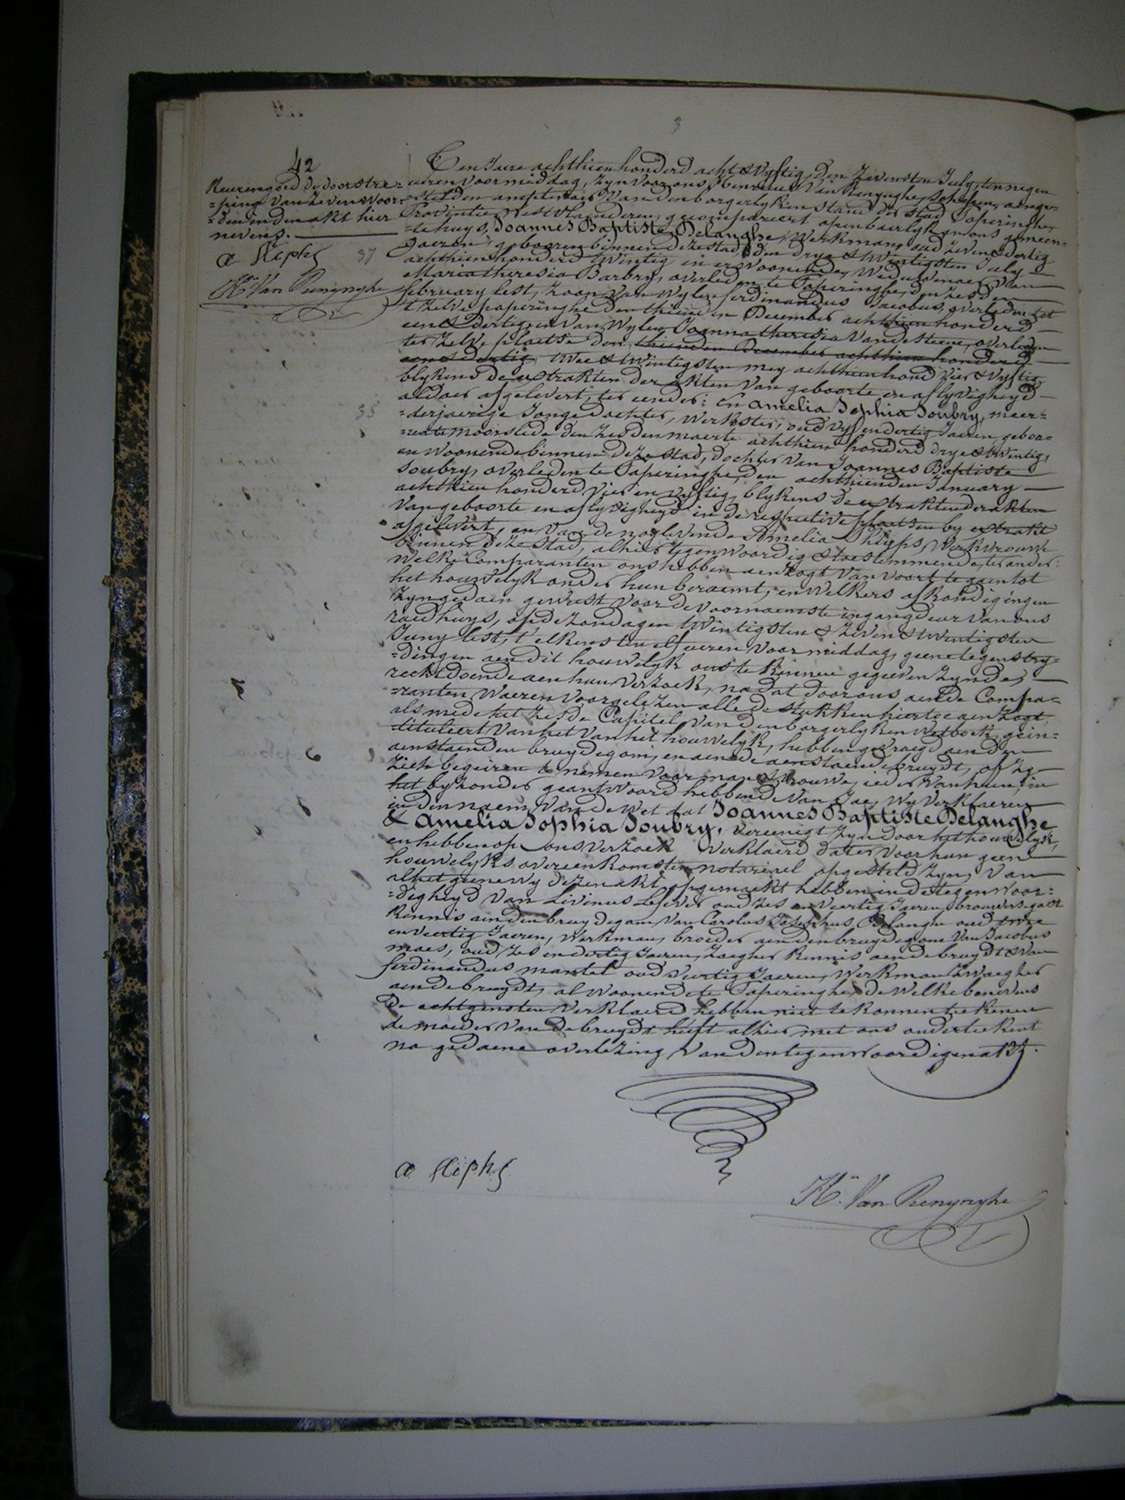 3
42
Keuren goed de doorstree-
=ping van zeven woor-
=den in den akt hier
nevens.
a Sliphs
37
Hs Van Renynghe
Ten Jare achthien honderd acht & vyftig, den zevensten July, ten negen
ueren voormiddag, zyn voor ons, Henricus Van Renynghe, Schepen, afge-
Officier van den borgerlyken stand der stad Poperinghe,
Provintie West Vlaenderen, gecompareert openbaerlyk in ons gemeen-
=tehuys, Joannes Baptiste Delanghe, Werkman, oud zeven & dertig
Jaeren, geboren binnen deze stad, den drye & twintigsten July
achthien honderd twintig, in er woonende, Weduwenaer van
Maria Theresia Barbry, overleden te Poperinghe, den
february lest, zoon van wylen ferdinandus Jacobus, overleden tot
't zelve poperinghe den thienen December achthien honderd
een & dertig en van wylen Joanna Theresia Vandesteene, overleden
ter zelve plaetse den thienden December achthien honderd
een & dertig twee & twintigsten mey achthien hond vier & vyftig,
blykens de extrakten der akten van geboorte en aflyvigheyd
aldaer afgelevert, ter eender: En Amelia Sophia Soubry, meer-
35
=derjaerige Jonge dochter, Werkster, oud vyf en dertig Jaeren, geboo-
=ren te Moorslede den zesden maerte achthien honderd drye & twintig,
en woonende binnen deze stad, dochter van Joannes Baptiste
Soubry, overleden te Poperinghe, den achthienden January
achthien honderd vier en vyftig, blykens de extrakten der akten
van geboorte en aflyvigheyd in de respective plaetsen by extrakt
afgelevert, en van de nog levende Amelia Sliphs, Werkvrouw
binnen deze stad, alhier tegenwoordig & toestemmende, ter ander:
Welke Comparanten ons hebben aenzogt van voort te gaen tot
het houwelyk onder hun beraemt, en welkers afkondigingen
zyn gedaen geweest voor de voornaemste ingangdeur van ons
raedhuys, op de zondagen twintigsten & zeven & twintigsten
Juny lest, t'elkens ten elf ueren voormiddag, geene tegenstry-
=dingen aen dit houwelyk ons te kennen gegeven zynde,
recht doende aen hun verzoek, na dat door ons aen de Compa-
=ranten waeren voorgelezen alle de stukken hier toe aenzogt
als mede het zesde Capitel van den borgerlyken wetboek, gein-
=tituleert van het van het houwelyk, hebben gevraegd aen den
aenstaenden bruydegom, en aen de aenstaende bruydt, of zy
zich begeiren te nemen voor man & vrouwe, ieder van hun
by zonder geantwoord hebbende van Jae, Wy verklaeren
in den naem van de wet dat Joannes Baptiste Delanghe
& Amelia Sophia Soubry, vereenigt zyn door het houwelyk,
en hebben op ons verzoek verklaerd dat er voor hun geen
houwelyks overeenkomsten notarieel opgesteld zyn, van
al het geene wy dezen akt opgemaekt hebben in de tegenwoor-
=digheyd van Livinus Lefever oud zes en veertig Jaeren, brouwersgast
kennis aen den bruydegom, van Carolus Josephus Delanghe oud
en veertig Jaeren, Werkman, broeder aen den bruydegom, van Jacobus
maes, oud zes en dertig Jaeren, zaeger kennis aen de bruydt & van
ferdinandus mantel oud veertig Jaeren, Werkman zwaeger
aen de bruydt, al woonende te Poperinghe, de welke benevens
de echtgenoten verklaerd hebben niet te konnen teekenen
de moeder van de bruydt heeft alhier met ons onderteekent
na gedaene overlezing van den tegenwoordigen akt.
a Sliphs
Hs Van Renynghe